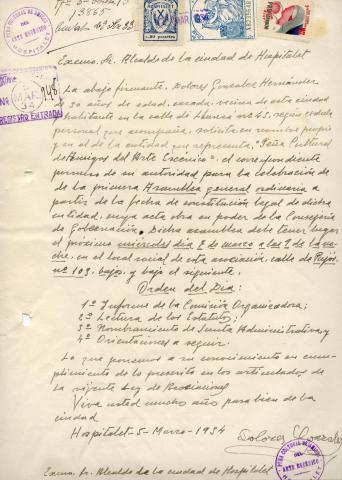 13865
PEÑA CULTURAL DE AMIGOS
DEL
ARTE ESCENICO
HOSPITALET
MAR. 34
REGISTRO ENTRADA
Excmo. Sr. Alcalde de la ciudad de Hospitalet
La abajo firmante, Dolores Gonzalez Hernández
de 30 años de edad, casada, vecina de esta ciudad
habitante en la calle de Llansá nº 45, según cedula
personal que acompaña, solicita en nombre propio
y en el de la entidad que representa, "Peña Cultural
de Amigos del Arte Escenico", el correspondiente
permiso de su autoridad para la celebración de
de la primera Asamblea general ordinaria a
partir de la fecha de constitución legal de dicha
entidad, cuya acta obra en poder de la Consejería
de Gobernación. Dicha asamblea debe tener lugar
el próximo miercoles dia 7 de marzo a las 9 de la no-
che, en el local social de esta asociación, calle de
nº 109, bajos, y bajo el siguiente.
Orden del Dia:
1º Informe de la Comisión Organizadora;
2º Lectura de los Estatutos;
3º Nombramiento de Junta Administrativa, y
4º Orientaciones a seguir.
Lo que ponemos a su conocimiento en cum-
plimiento de lo prescrito en los articulados de
la vijente Ley de Asociaciones
Viva usted muchos años para bien de la
ciudad
Hospitalet - 5 - Marzo - 1934
Dolores Gonzalez
PEÑA CULTURAL DE AMIGOS
DEL
ARTE ESCENICO
HOSPITALET
Excmo. Sr. Alcalde de la ciudad de Hospitalet